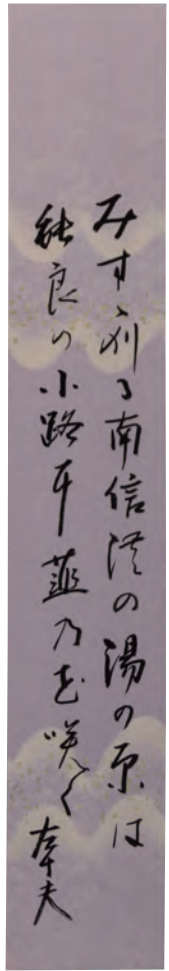 みすゞ刈る南信濃の湯の原は
野良の小路に韮の花咲く 奉夫